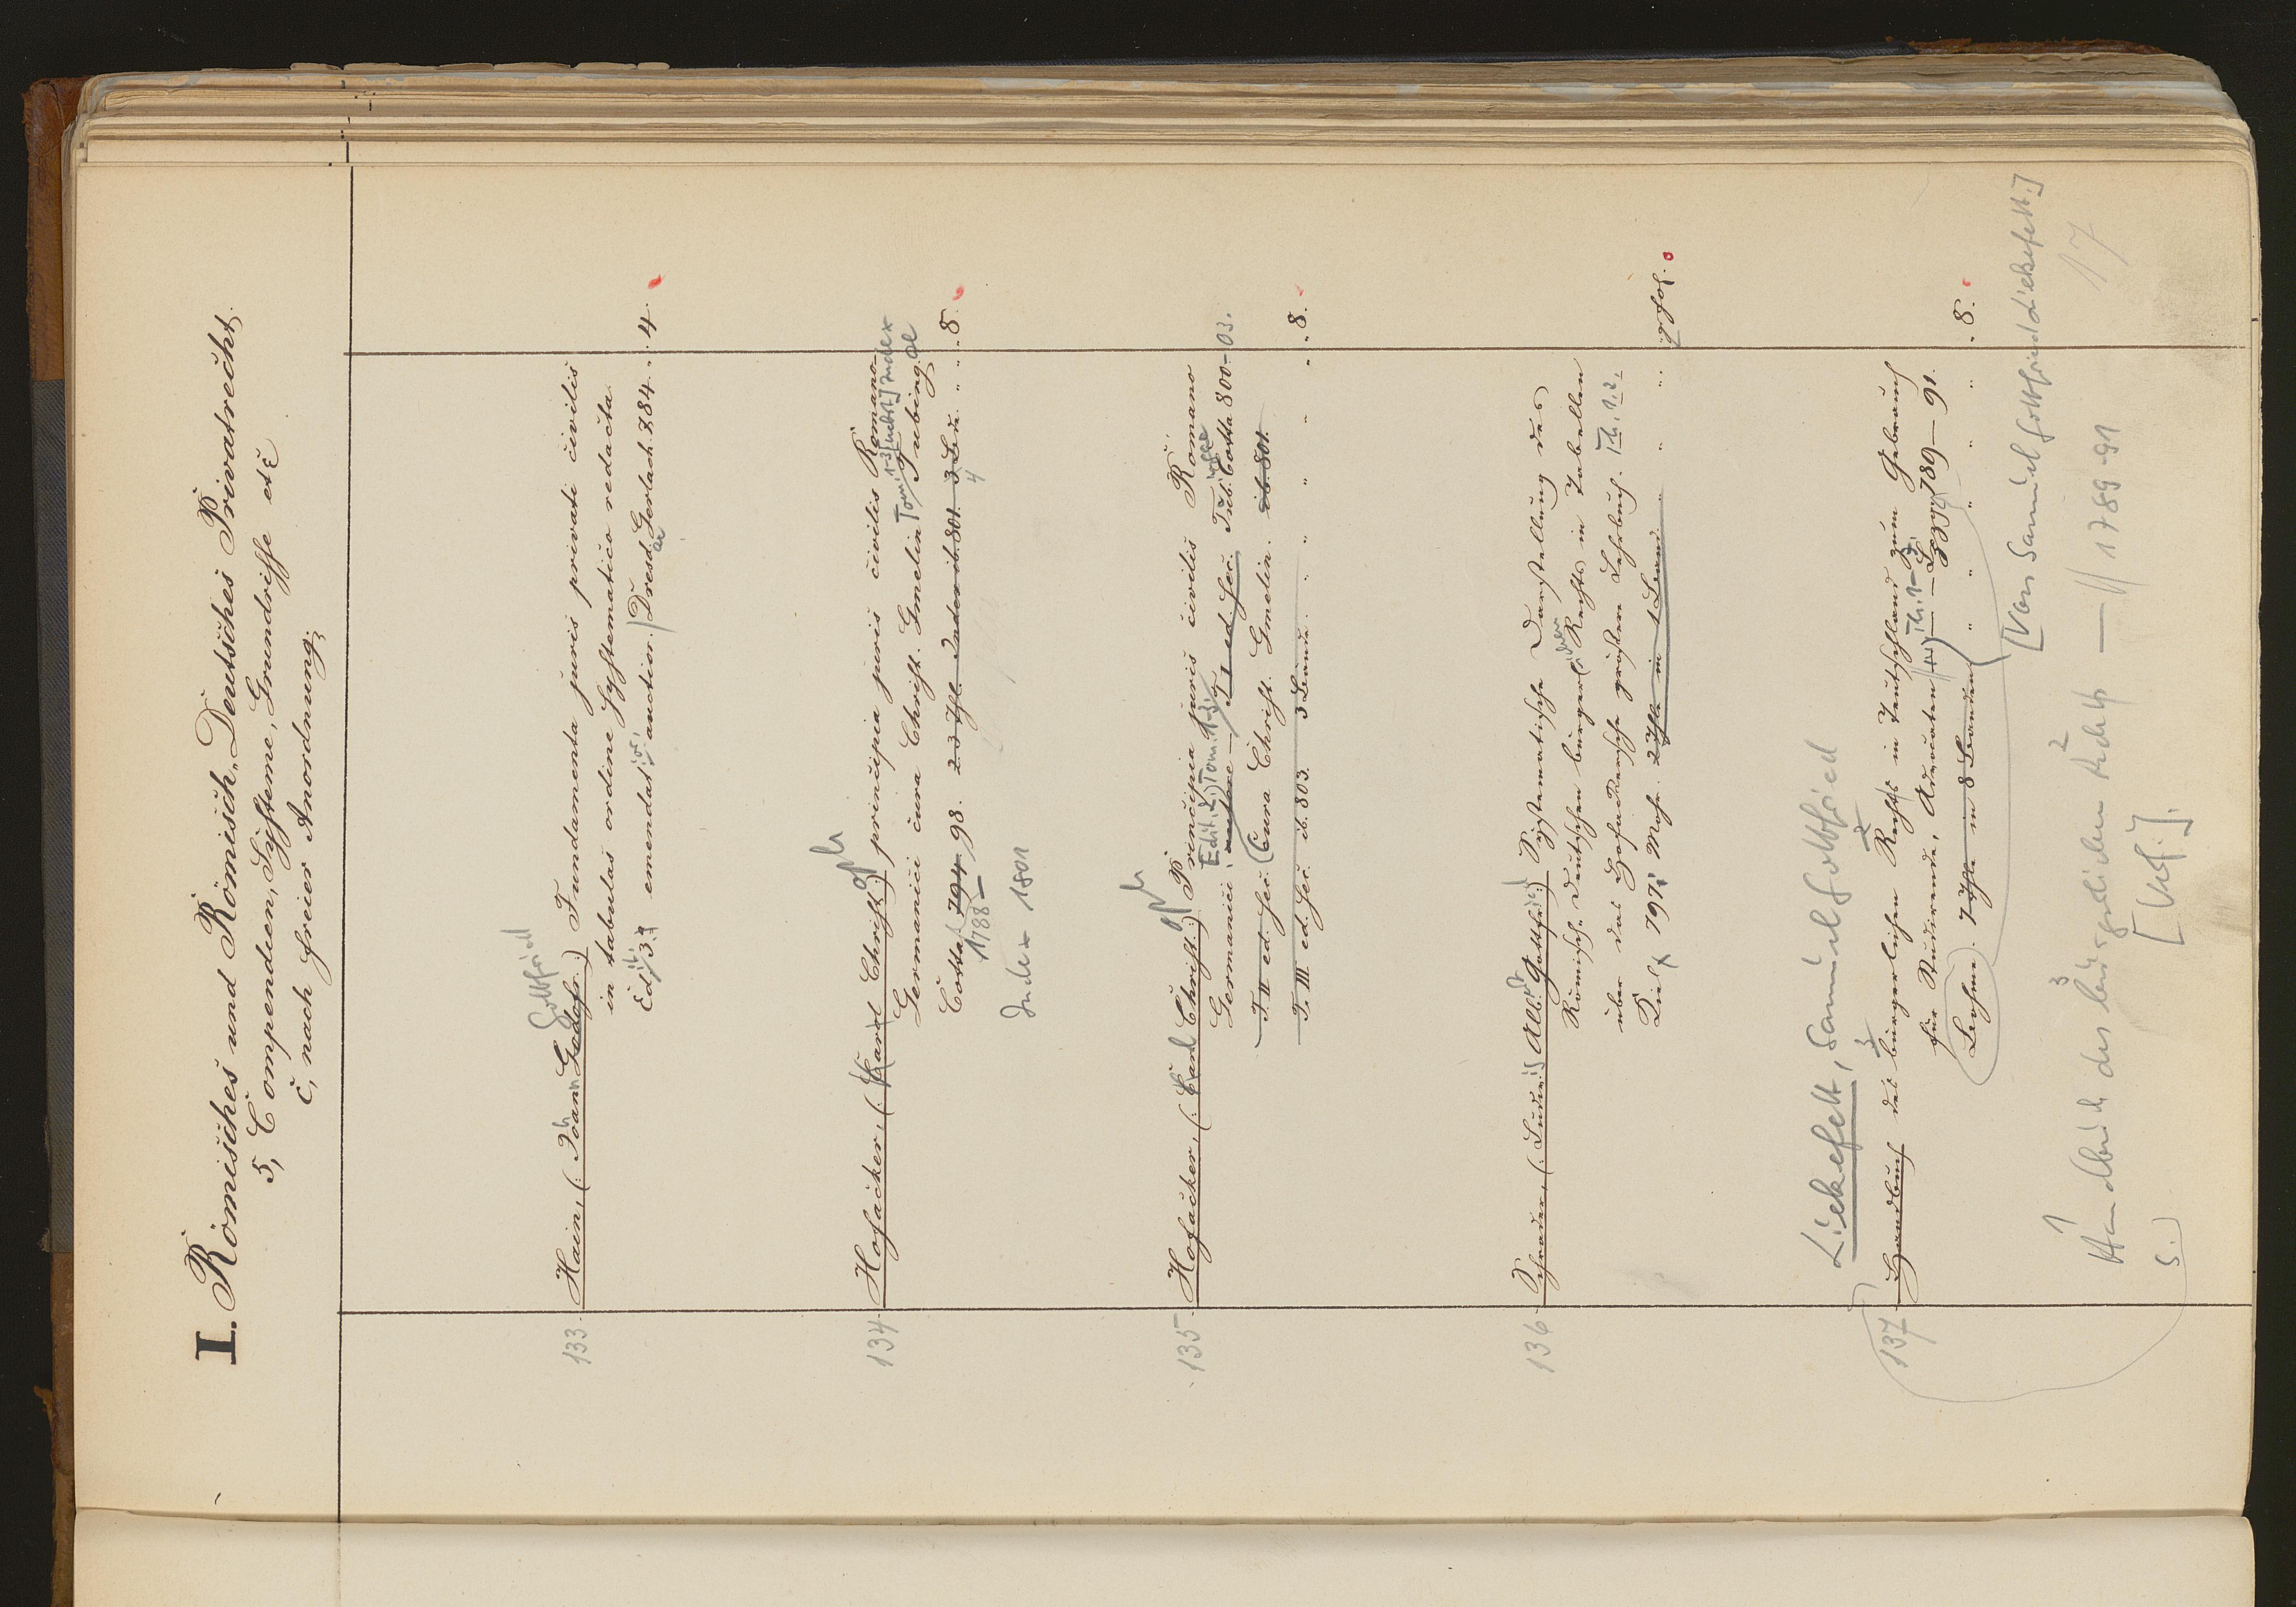 I. Römisches und Römisch-Deutsches Privatrecht.
5, Compendien, Systeme, Grundrisse etc
c, nach freier Anordnung;
Gottfried
133. Hain, (: Johann Godofr. :) Fundamenta juris privati civilis
in tabulas ordine systematico redacta.
Edit. 3. emendatior, auctior. Dresdae Gerlach. 784. . 4.
134. Hofacker, (: Karl Christoph :) principia juris civilis Romano-
Germanici cura Christ. Gmelin Tomi 1-3 [nebst] Index Tubingae
Cotta 794 98. 2. 3 Thl. Index ib. 801. 3 Bde. " " . 8.
1788- 4
Index 1801
135. Hofacker, (: Karl Christoph :) Principia juris civilis Romano
Germanici Edit. 2. Tom. 1-3. T. I ed. sec. Tubingae Cotta 800-03.
T. II ed. sec. Cura Christ. Gmelin. ib. 801.
T. III ed. sec. ib. 803. 3 Bände. " " " " . 8.
136. Schrader, (: Ludw. Albrecht Gottfr. :) Systematische Darstellung des
Römisch-Deutschen bürgerlichen Rechts in Tabellen
über das Höpfnersche größere Lehrbuch. Th. 1. 2.
Kiel 797. Mohr. 2 Thle in 1 Band. " " . . gr fol.
Liekefett, Samuel Gottfried
137. Handbuch des bürgerlichen Rechts in Deutschland zum Gebrauch
für Studirende, Advocaten Th. 1-7. Lpzg 789-91.
Boehme. 7 Thle in 8 Baenden " " " " . 8.
[Von Samuel Gottfried Liekefett.]
Handbuch des bürgerlichen Rechts — // 1789-91
1 3 2
17
S. [Verf.].